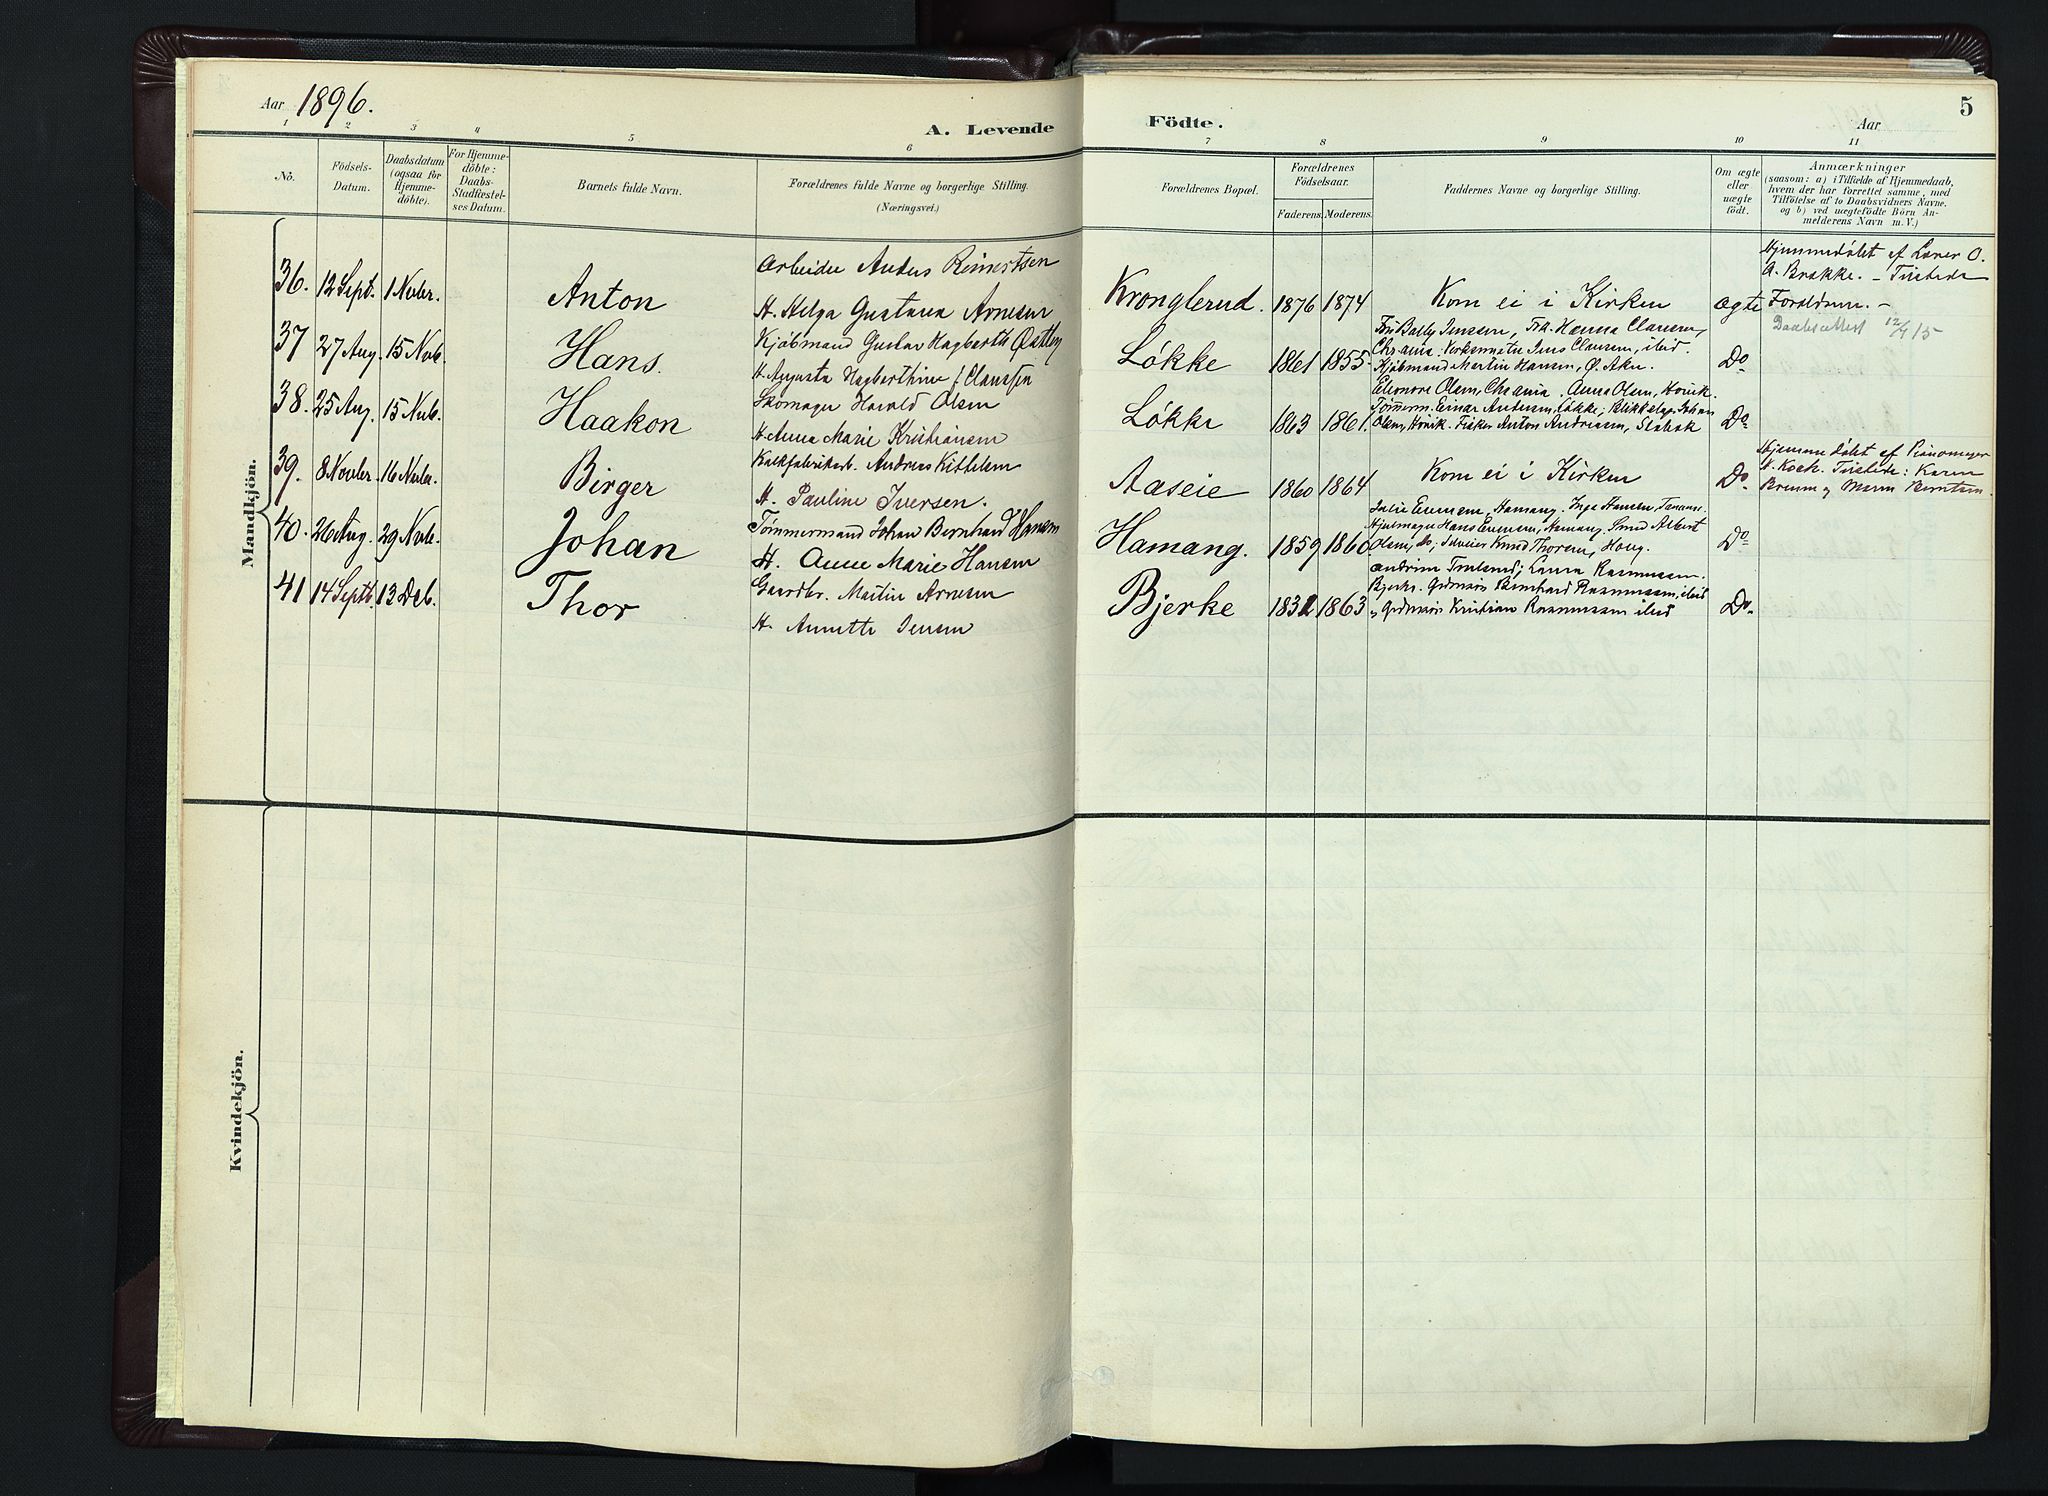 Aar 1896.
A. Levende Födte.
5
Aar
1 2 3 4 5 6 7 8 9 10 11
No.
Födsels-
Datum.
Daabsdatum
(ogsaa for
Hjemme-
döbte).
For Hjemme-
döbte:
Daabs-
Stadfæstel-
ses Datum.
Barnets fulde Navn.
Forældrenes fulde Navne og borgerlige Stilling.
(Næringsvei.)
Forældrenes Bopæl.
Forældrenes
Födselsaar.
Faderens. Moderens.
Faddernes Navne og borgerlige Stilling.
Om ægte
eller
uægte
födt.
Anmærkninger
(saasom: a) i Tilfælde af Hjemmedaab,
hvem der har forrettet samme, med
Tilföielse af to Daabsvidners Navne.
og b) ved uægtefödte Börn An-
melderens Navn m.V.)
Mandkjön.
36. 12 Sept. 1 Novbr. Anton
Arbeider Anders Reinertsen
H. Helga Gustava Arnesen
Kronglerud. 1876 1874 Kom ei i Kirken ægte
Hjemmedøbt af Lærer O.
A. Brække. – Tilstede
Forældrene. –
Daabsattest 12/4 15
37 27 Aug. 15 Novb. Hans.
Kjøbmand Gustav Hagbarth Østby
H. Augusta Hagbarthine f. Clausen
Løkke 1861 1855
Jensen, Frk. Hanna Clausen,
Chrania: Jens Clausen, ibid.
Kjøbmand Martin Hansen, Ø. Aker.
Do
38. 25 Aug. 15 Novb. Haakon
Skomager Harald Olsen
H. Anna Marie Kristiansen
Løkke 1863 1861.
Elionore Olsen, Chrania. Anna Olsen, Høvik.
Tømmerm. Einar Andersen, Løkke; Johan
Olsen, Høvik. Fisker Anton Andersen, Stabæk
Do
39. 8 Novbr. 16 Novbr. Birger
Kalkfabrikarb. Andreas Kittelsen
H. Pauline Iversen.
Aaseie 1860 1864 Kom ei i Kirken Do
Hjemmedøbt af
H. Koch. Tilstede: Karen
og Maren Berntsen.
40. 26 Aug. 29 Novb. Johan
Tømmermand Johan Bernhard Hansen
H. Anne Marie Hansen
Hamang. 1859 1860
Julie Evensen, Hamang. Inga Hansen,
Hjulmager Hans Evensen, Hamang. Smed Albert
Olsen, do; Knud Thoresen, Haug.
Do
41 14 Septb. 13 Deb. Thor
Gaardbr. Martin Arnesen
H. Annette Jensen
Bjerke 1832 1863
Andrine Laura Rasmussen.
Bjerke. Bernhard Rasmussen, ibid
Kristian Rasmussen ibid
Do
Kvindekjön.